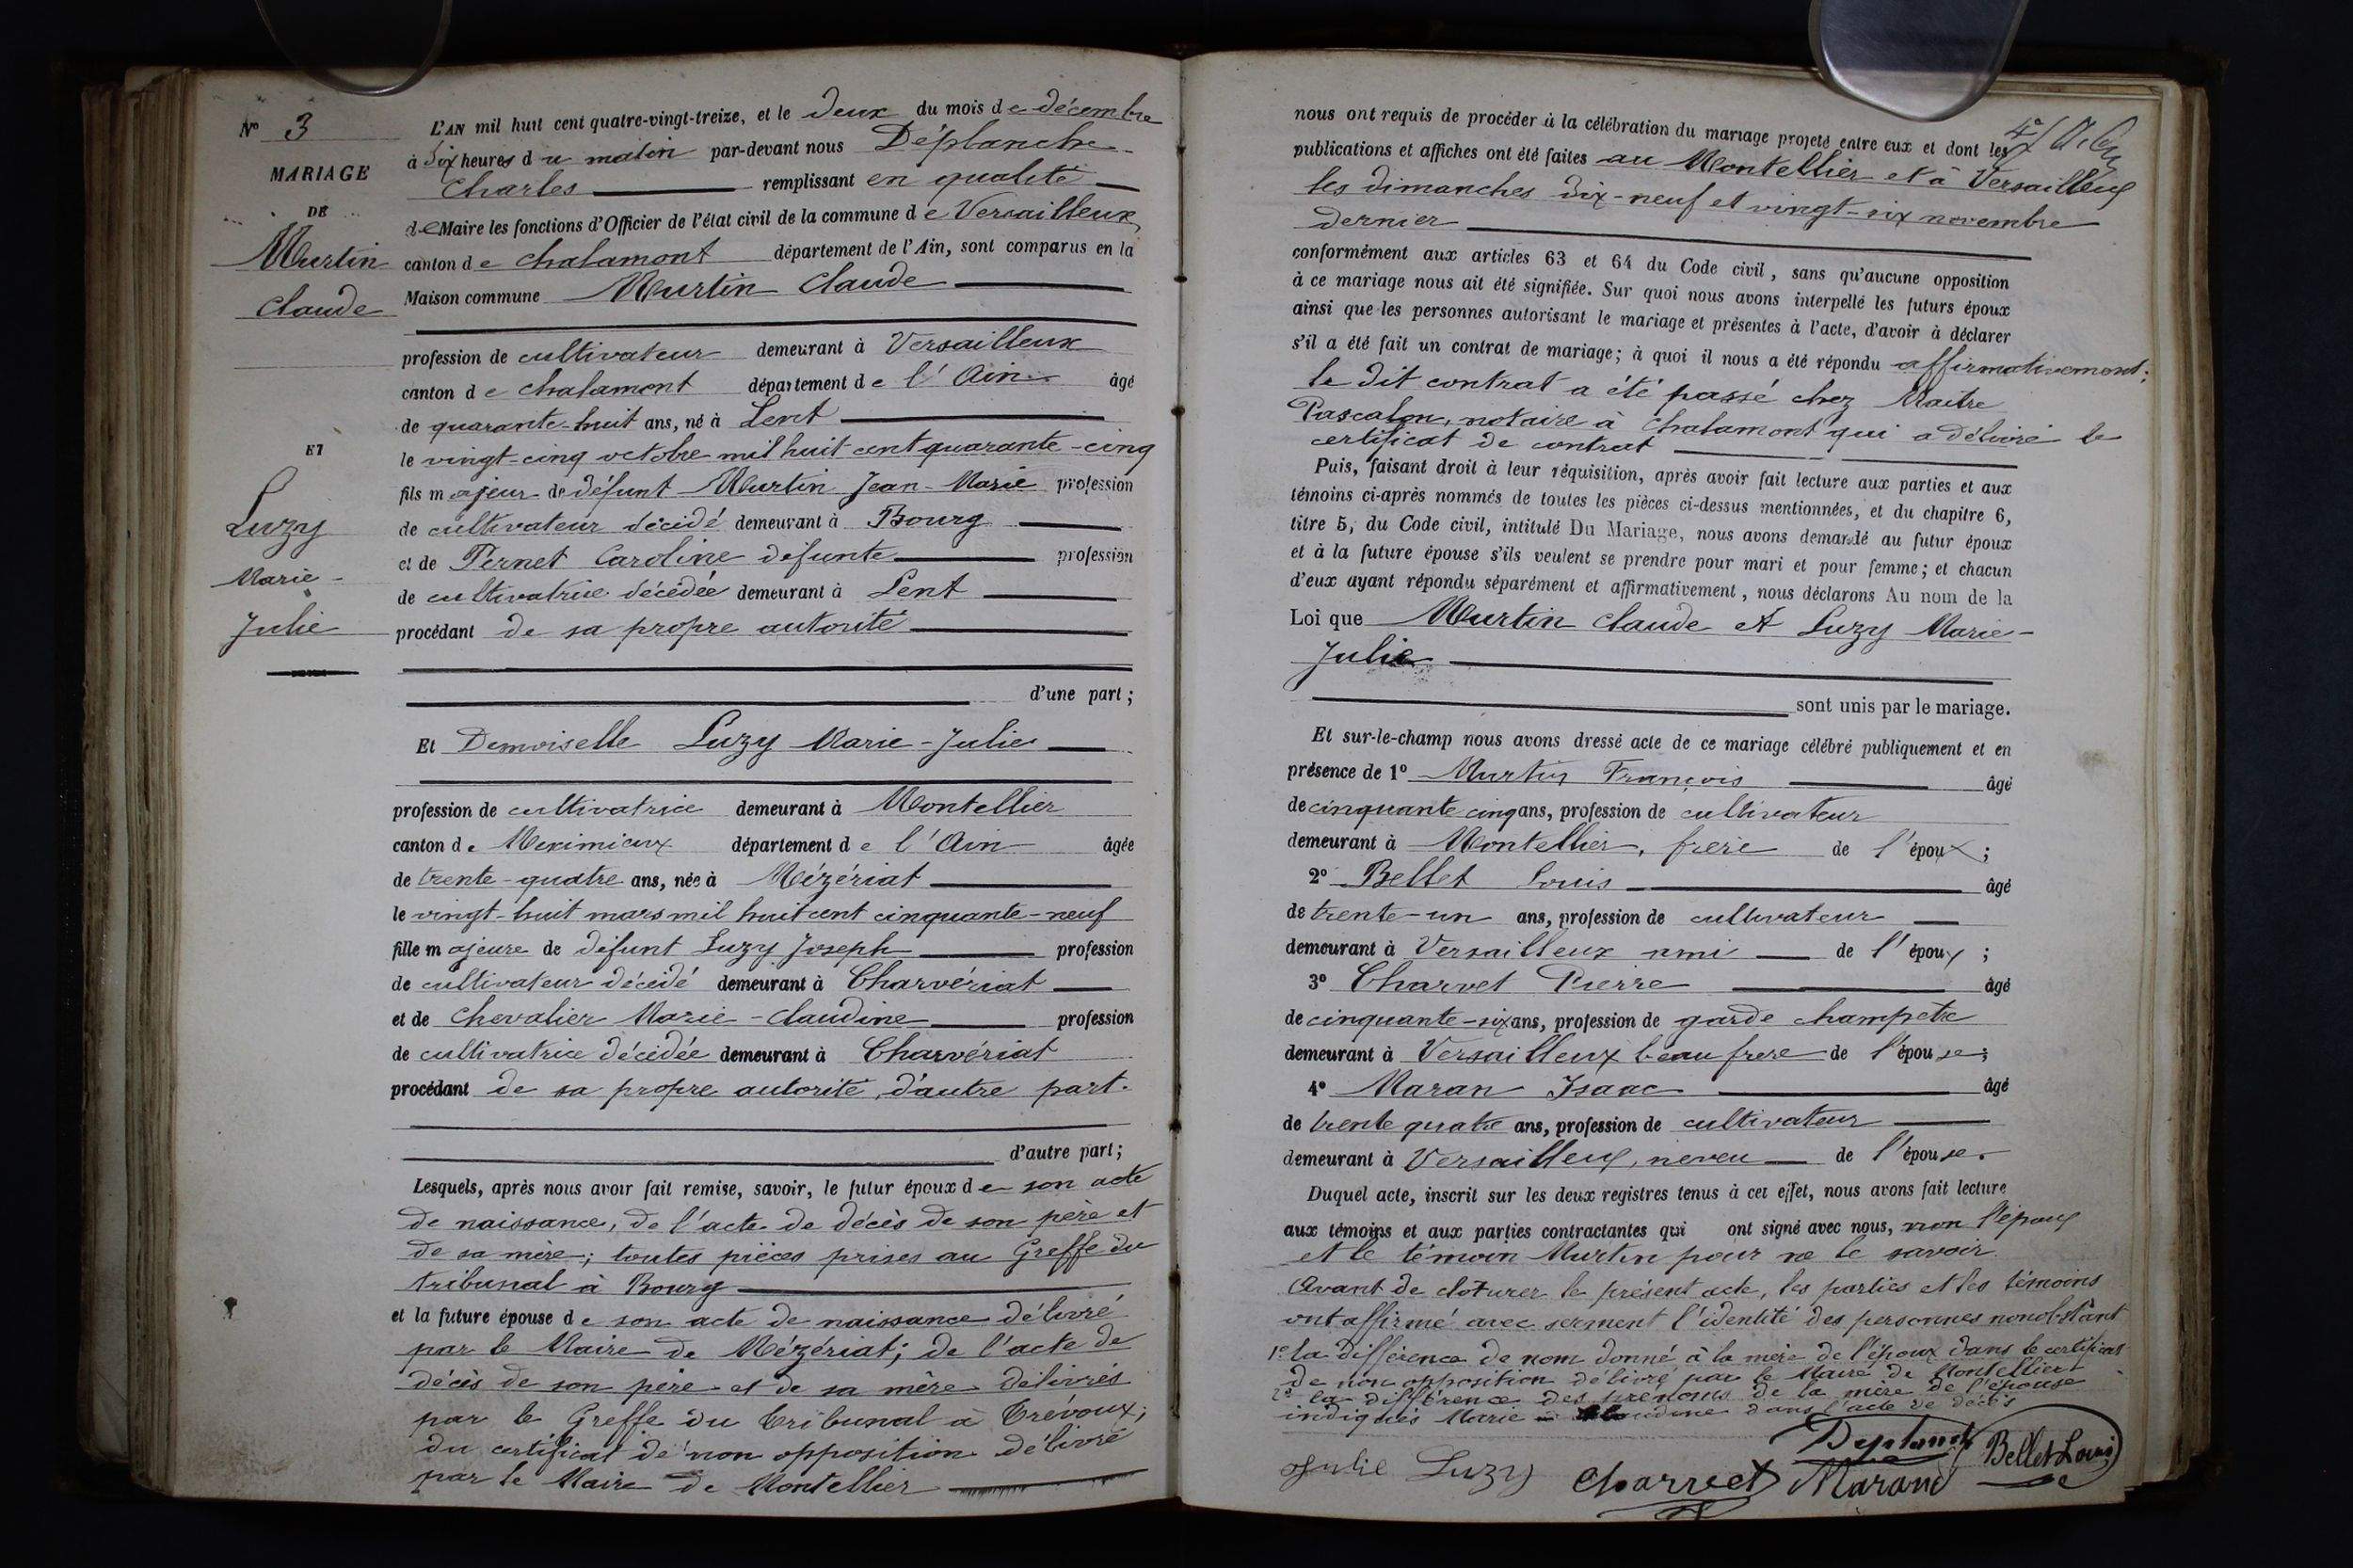 N° 3
MARIAGE
DE
Murtin
Claude
ET
Luzy
Marie-
Julie
L'AN mil huit cent quatre-vingt-treize, et le deux du mois de décembre
à dix heures du matin par-devant nous Déplanche
Charles remplissant en qualité
de Maire les fonctions d'Officier de l'état civil de la commune de Versailleux,
canton de Chalamont département de l'Ain, sont comparus en la
Maison commune Murtin Claude
profession de cultivateur demeurant à Versailleux
canton de Chalamont département de l'Ain âgé
de quarante-huit ans, né à Lent
le vingt-cinq octobre mil huit cent quarante-cinq
fils majeur de défunt Murtin Jean-Marie profession
de cultivateur décédé demeurant à Bourg
et de Pernet Caroline défunte profession
de cultivatrice décédée demeurant à Lent
procédant de sa propre autorité
d'une part;
Et Demoiselle Luzy Marie-Julie
profession de cultivatrice demeurant à Montellier
canton de Meximieux département de l'Ain âgée
de trente-quatre ans, née à Mézériat
le vingt-huit mars mil huit cent cinquante-neuf
fille majeure de défunt Luzy Joseph profession
de cultivateur décédé demeurant à Charvériat
et de Chevalier Marie-Claudine profession
de cultivatrice décédée demeurant à Charvériat
procédant de sa propre autorité, d'autre part.
d'autre part;
Lesquels, après nous avoir fait remise, savoir, le futur époux de son acte
de naissance, de l'acte de décès de son père et
de sa mère; toutes pièces prises au Greffe du
tribunal à Bourg
et la future épouse de son acte de naissance délivré
par le Maire de Mézériat; de l'acte de
décès de son père et de sa mère délivrés
par le Greffe du tribunal à Trévoux;
du certificat de non opposition délivré
par le Maire de Montellier
nous ont requis de procéder à la célébration du mariage projeté entre eux et dont les
publications et affiches ont été faites au Montellier et à Versailleux
les dimanches dix-neuf et vingt-six novembre
dernier
conformément aux articles 63 et 64 du Code civil, sans qu'aucune opposition
à ce mariage nous ait été signifiée. Sur quoi nous avons interpellé les futurs époux
ainsi que les personnes autorisant le mariage et présentes à l'acte, d'avoir à déclarer
s'il a été fait un contrat de mariage; à quoi il nous a été répondu affirmativement;
le dit contrat a été passé chez Maitre
Pascalon, notaire à Chalamont qui a délivré le
certificat de contrat
Puis, faisant droit à leur réquisition, après avoir fait lecture aux parties et aux
témoins ci-après nommés de toutes les pièces ci-dessus mentionnées, et du chapitre 6,
titre 5, du Code civil, intitulé Du Mariage, nous avons demandé au futur époux
et à la future épouse s'ils veulent se prendre pour mari et pour femme; et chacun
d'eux ayant répondu séparément et affirmativement, nous déclarons Au nom de la
Loi que Murtin Claude et Luzy Marie-
Julie
sont unis par le mariage.
Et sur-le-champ nous avons dressé acte de ce mariage célébré publiquement et en
présence de 1° Murtin François âgé
de cinquante cinq ans, profession de cultivateur
demeurant à Montellier, frère de l'époux;
2° Bellet Louis âgé
de trente-un ans, profession de cultivateur
demeurant à Versailleux ami de l'époux;
3° Charvet Pierre âgé
de cinquante-six ans, profession de garde champêtre
demeurant à Versailleux beau frere de l'épouse;
4° Maran Isaac âgé
de trente quatre ans, profession de cultivateur
demeurant à Versailleux, neveu de l'épouse.
Duquel acte, inscrit sur les deux registres tenus à cet effet, nous avons fait lecture
aux témoins et aux parties contractantes qui ont signé avec nous, non l'époux
et le témoin Murtin pour ne le savoir.
Avant de cloturer le présent acte, les parties et les témoins
ont affirmé avec serment l'identité des personnes nonobstant
1° la différence de nom donné à la mère de l'époux dans le certificat
de non opposition délivré par le Maire de Montellier
2° la différence des prénoms de la mère de l'épouse
indiqués Marie dans l'acte de décès
Deplanche Bellet Louis
Julie Luzy Charvet Marand